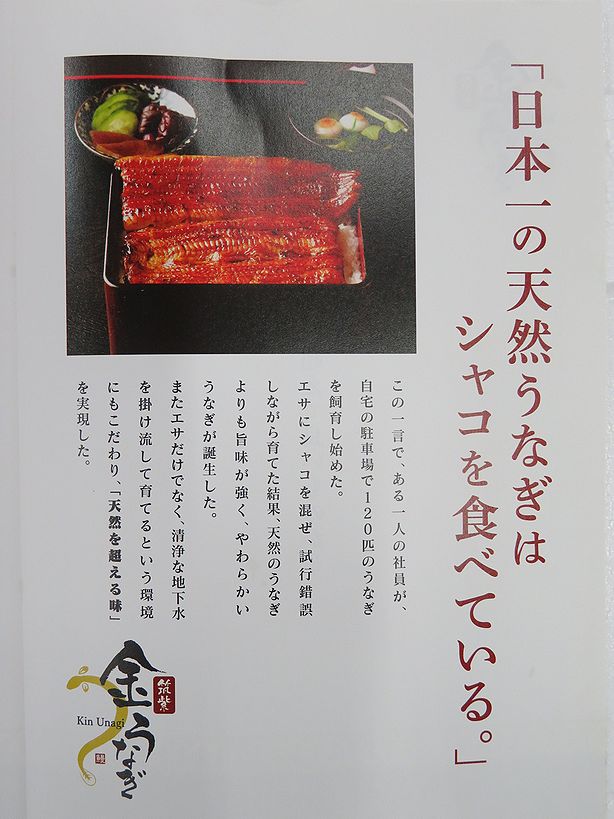 「日本一の天然うなぎは
シャコを食べている。」
この一言で、ある一人の社員が、
自宅の駐車場で120匹のうなぎ
を飼育し始めた。
エサにシャコを混ぜ、試行錯誤
しながら育てた結果、天然のうなぎ
よりも旨味が強く、やわらかい
うなぎが誕生した。
またエサだけでなく、清浄な地下水
を掛け流して育てるという環境
にもこだわり、「天然を超える味」
を実現した。
筑紫
金うなぎ
Kin Unagi